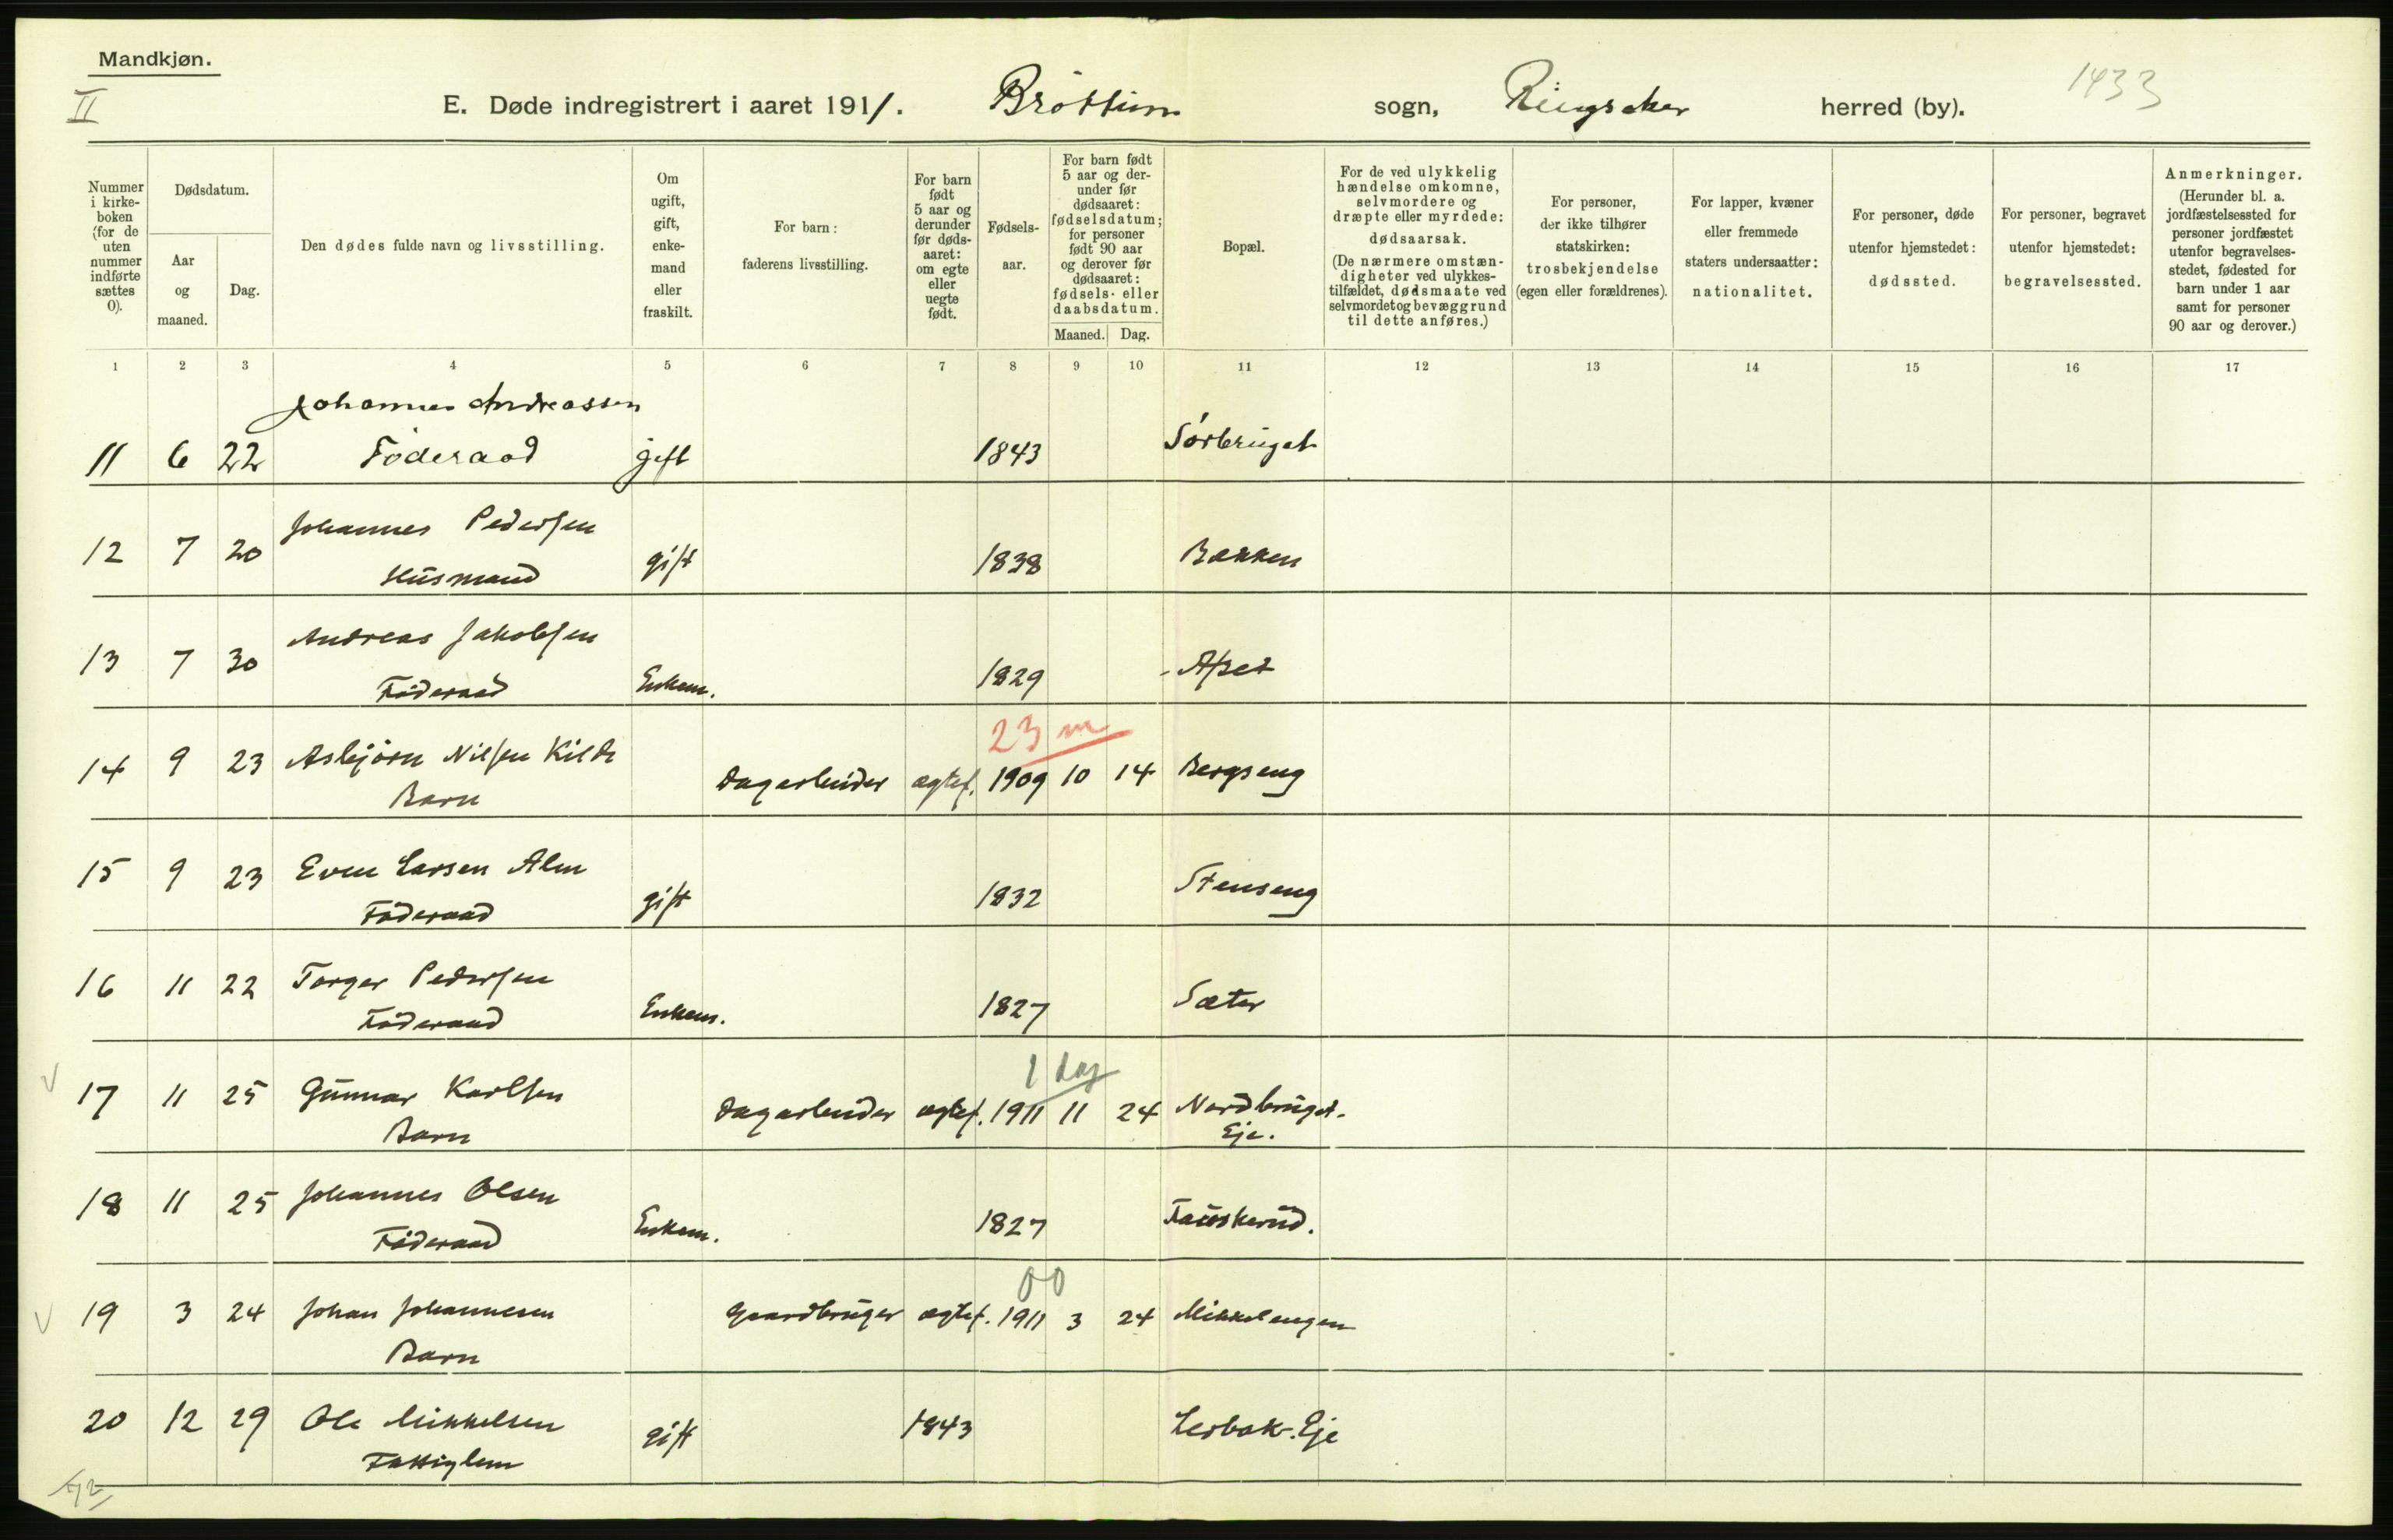 Mandkjøn.
II
E. Døde indregistrert i aaret 1911. Brøttum sogn, Ringsaker herred (by).
1433
Nummer i kirkeboken (for de uten nummer indførte sættes 0).
Dødsdatum.
Aar og maaned.
Dag.
Den dødes fulde navn og livsstilling.
Om ugift, gift, enkemand eller fraskilt.
For barn: faderens livsstilling.
For barn født 5 aar og derunder før dødsaaret: om egte eller uegte født.
Fødselsaar.
For barn født 5 aar og derunder før dødsaaret: fødselsdatum; for personer født 90 aar og derover før dødsaaret: fødsels- eller daabsdatum.
Maaned. Dag.
Bopæl.
For de ved ulykkelig hændelse omkomne, selvmordere og dræpte eller myrdede: dødsaarsak. (De nærmere omstændigheter ved ulykkestilfældet, dødsmaate ved selvmordet og bevæggrund til dette anføres.)
For personer, der ikke tilhører statskirken: trosbekjendelse (egen eller forældrenes).
For lapper, kvæner eller fremmede staters undersaatter: nationalitet.
For personer, døde utenfor hjemstedet: dødssted.
For personer, begravet utenfor hjemstedet: begravelsessted.
Anmerkninger. (Herunder bl. a. jordfæstelsessted for personer jordfæstet utenfor begravelsesstedet, fødested for barn under 1 aar samt for personer 90 aar og derover.)
1 2 3 4 5 6 7 8 9 10 11 12 13 14 15 16 17
Johannes Andreassen
11 6 22 Föderaad gift 1843 Sörbruget
Johannes Pedersen
12 7 20 Husmand gift 1838 Bakken
Andreas Jakobsen
13 7 30 Föderaad Enkem. 1829 Apset
23 m
14 9 23 Asbjörn Nilsen Kilde Dagarbeider ægtef. 1909 10 14 Bergseng
Barn
15 9 23 Even Larsen Alm gift 1832 Stenseng
Föderaad
16 11 22 Torger Pedersen Enkem. 1827 Sæter
Föderaad
1 dag
17 11 25 Gunnar Karlsen Dagarbeider ægtef. 1911 11 24 Nordbruget.
Barn Eje.
18 11 25 Johannes Olsen Enkem. 1827 Fauskerud.
Föderaad
00
19 3 24 Johan Johannesen Gaardbruger ægtef. 1911 3 24 Mikkelengen
Barn
20 12 29 Ole Mikkelsen gift 1843 Lerbak. Eje
Fattiglem